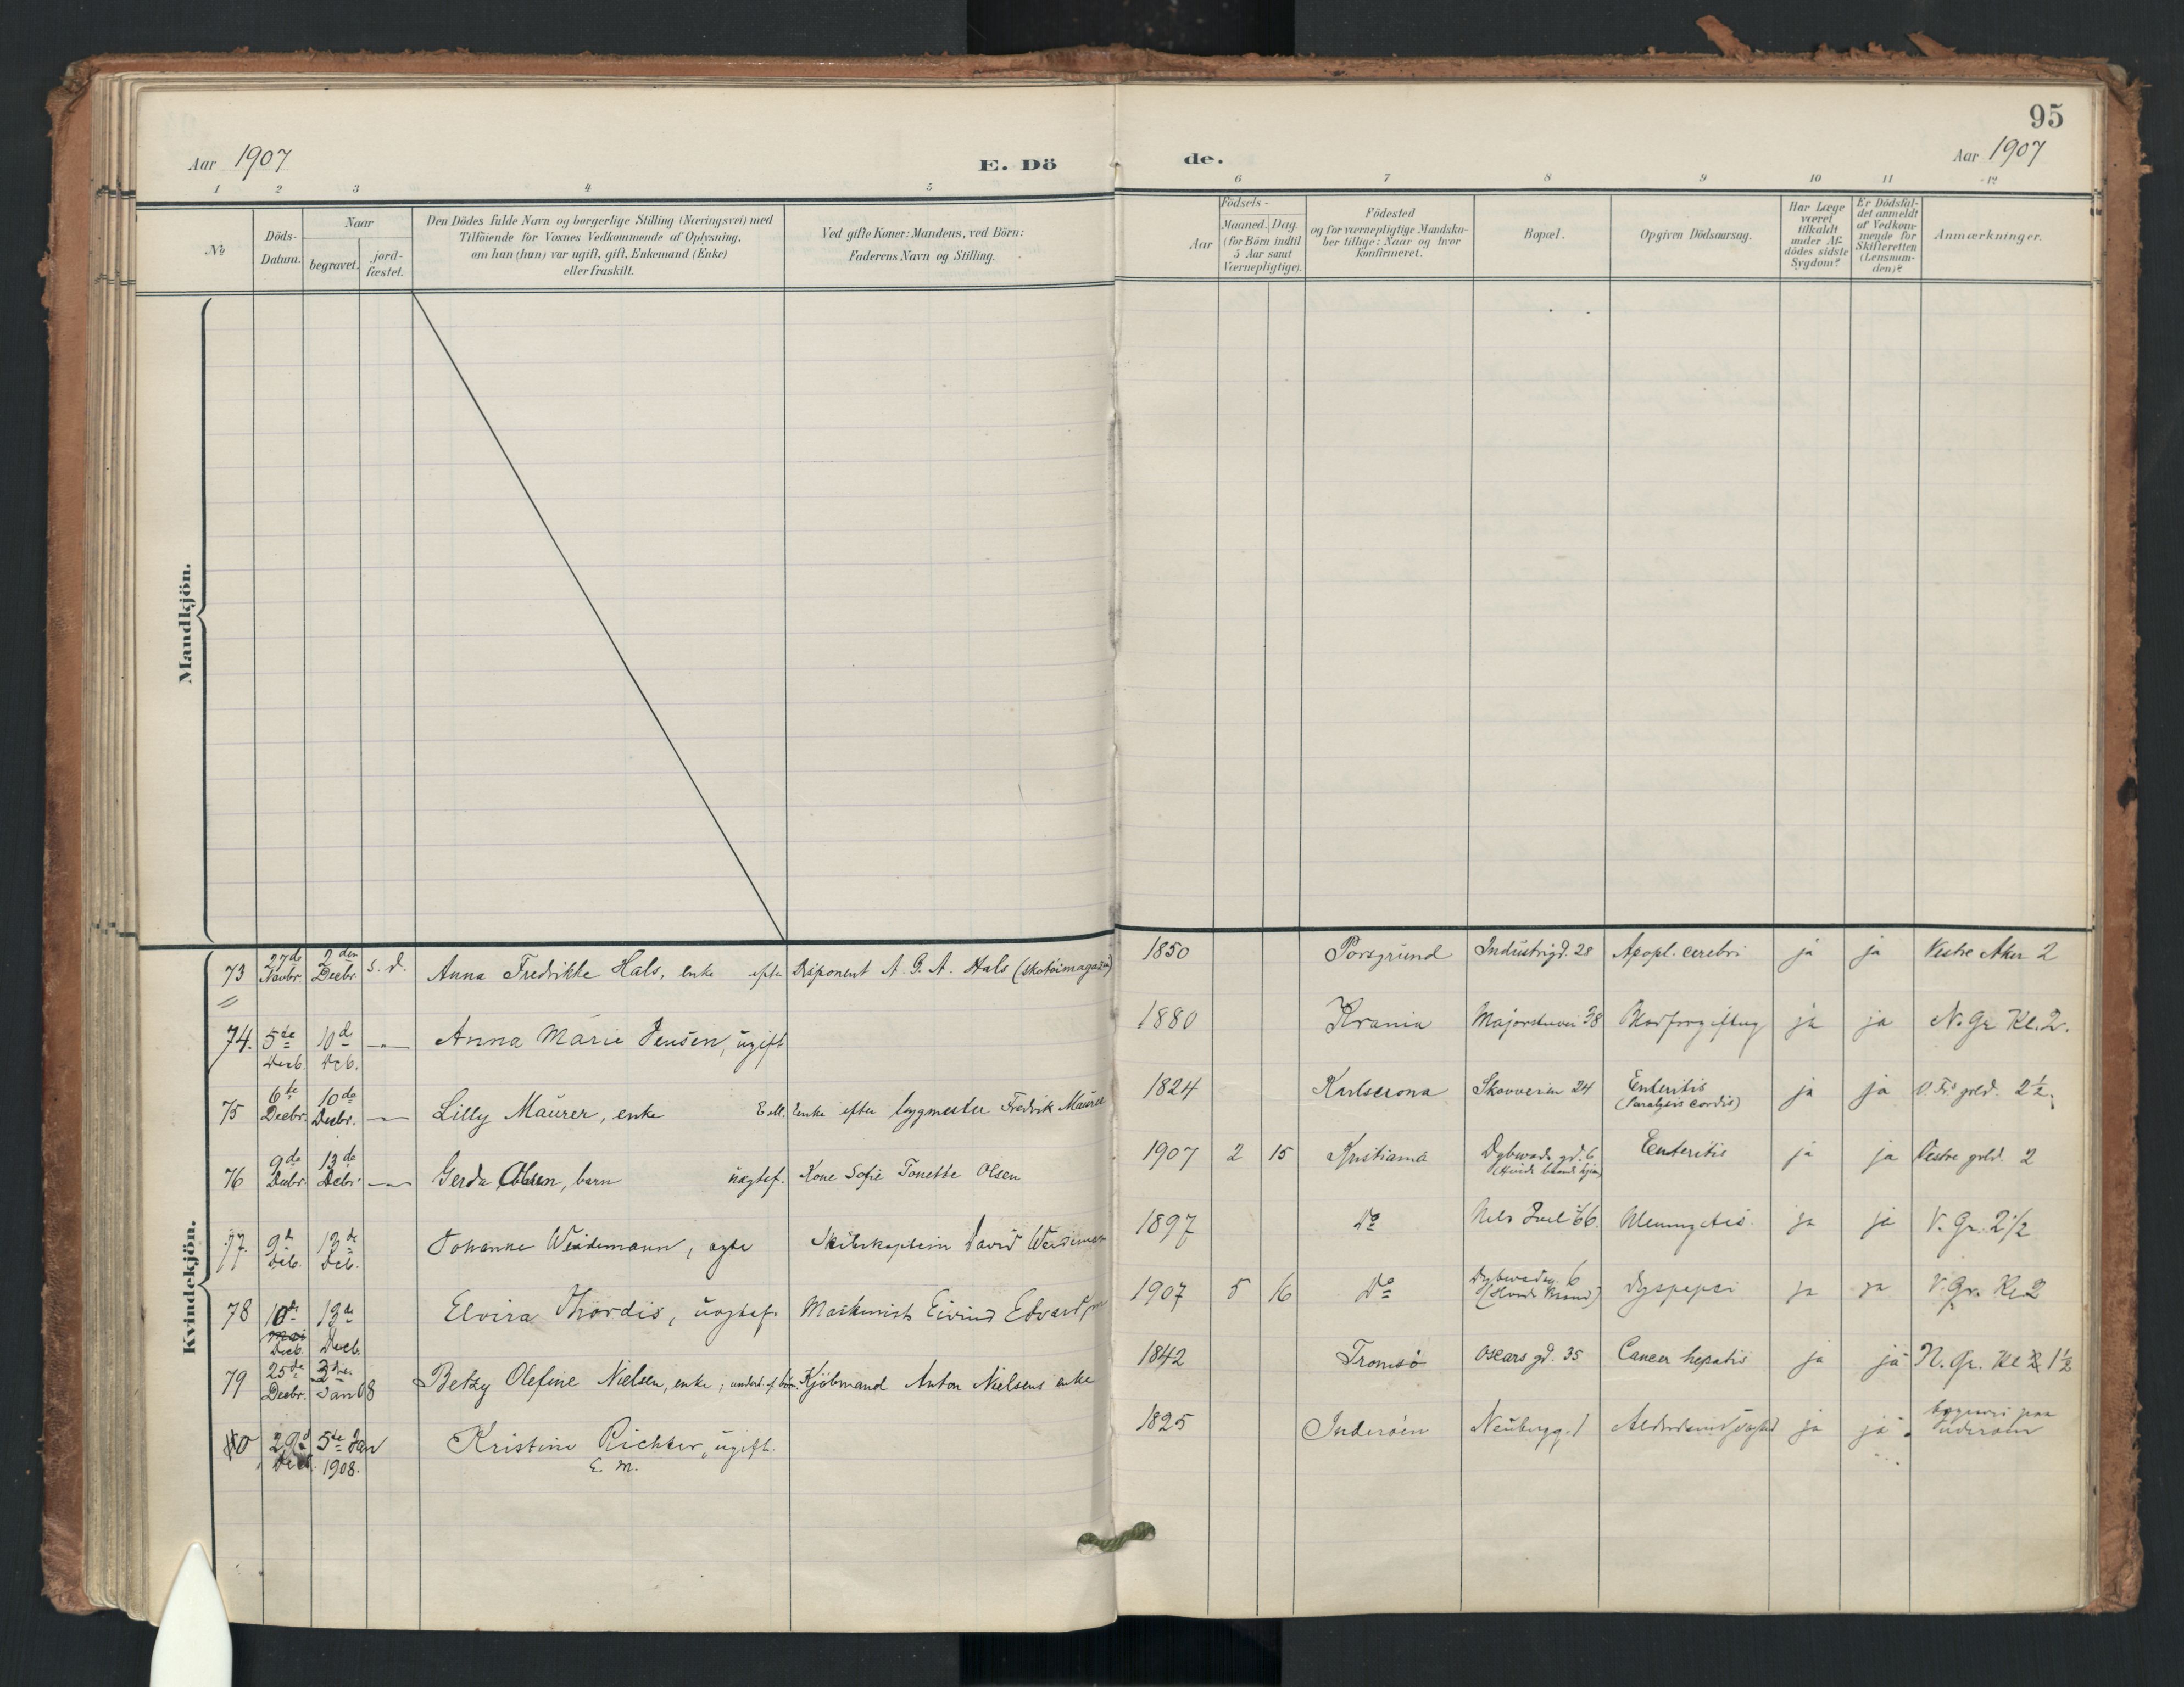 95
Aar 1907
E. Dö de.
Aar 1907
1 2 3 4 5 6 7 8 9 10 11 12
No
Döds-
Datum.
Naar
begravet.
jord-
fæstet.
Den Dödes fulde Navn og borgerlige Stilling (Næringsvei) med
Tilföiende for Voxnes Vedkommende af Oplysning,
om han (hun) var ugift, gift, Enkemand (Enke)
eller fraskilt.
Ved gifte Koner: Mandens, ved Börn:
Faderens Navn og Stilling.
Aar
Födsels-
Maaned. Dag.
(for Börn indtil
5 Aar samt
Værnepligtige).
Födested
og for værnepligtige Mandska-
ber tillige: Naar og hvor
konfirmeret.
Bopæl.
Opgiven Dödsaarsag.
Har Læge
været
tilkaldt
under Af-
dödes sidste
Sygdom?
Er Dödsfal-
det anmeldt
af Vedkom-
mende for
Skifteretten
(Lensman-
den)?
Anmærkninger.
Mandkjön.
Kvindekjön.
73 27de Novbr. 2den Decbr. s. d. Anna Fredrikke Hals, enke efter Disponent A. G. A. Hals (skotöimagasin) 1850 Porsgrund Industrigd. 28 Apopl. cerebri ja ja Vestre Aker 2
74. 5te Decb. 10de Dcb. — Anna Marie Jensen, ugift 1880 Krania Majorstuvei 38 Blodforgiftng ja ja N. Gr. Kl. 2.
75 6te Decbr. 10de Decbr. — Lilly Maurer, enke enke efter bygmester Fredrik Maurer 1824 Karlscrona Skovveien 24 Enteritis (Paralysis cordis) ja ja V. Fr.s grld. 2½.
76 9de Decbr. 13de Decbr. — Gerda Olsen, barn uægtef. Kone Sofie Tonette Olsen 1907 2 15 Kristiania Dybwads gd. 6 Enteritis ja ja Vestre grld. 2
77. 9de Dcb. 13de Dcb. Johanne Weidemann, ægte Skibskaptein David Weidemann 1897 Do Nels Juel 66. Meningitis. ja ja V. Gr. 2½
78 10de Decb. 13de Decb. Elvira Thordis, uægtef. Maskinist Eivind Edvardsen 1907 5 16 Do Dybwadsg. 6 Dyspepsi ja ja V. Gr. Kl 2
79 25de Decbr. 3die Jan 08 Betzy Olefine Nielsen, enke; underst. af börn. Kjöbmand Anton Nielsens enke 1842 Tromsö Oscars gd. 35 Cancer hepatis ja ja N. Gr. Kl 2 1½
80 29de Decb. 5te Jan 1908. Kristine Richter, ugift. E. M. 1825 Inderöen Neubergg. 1 ja ja paa Inderöen